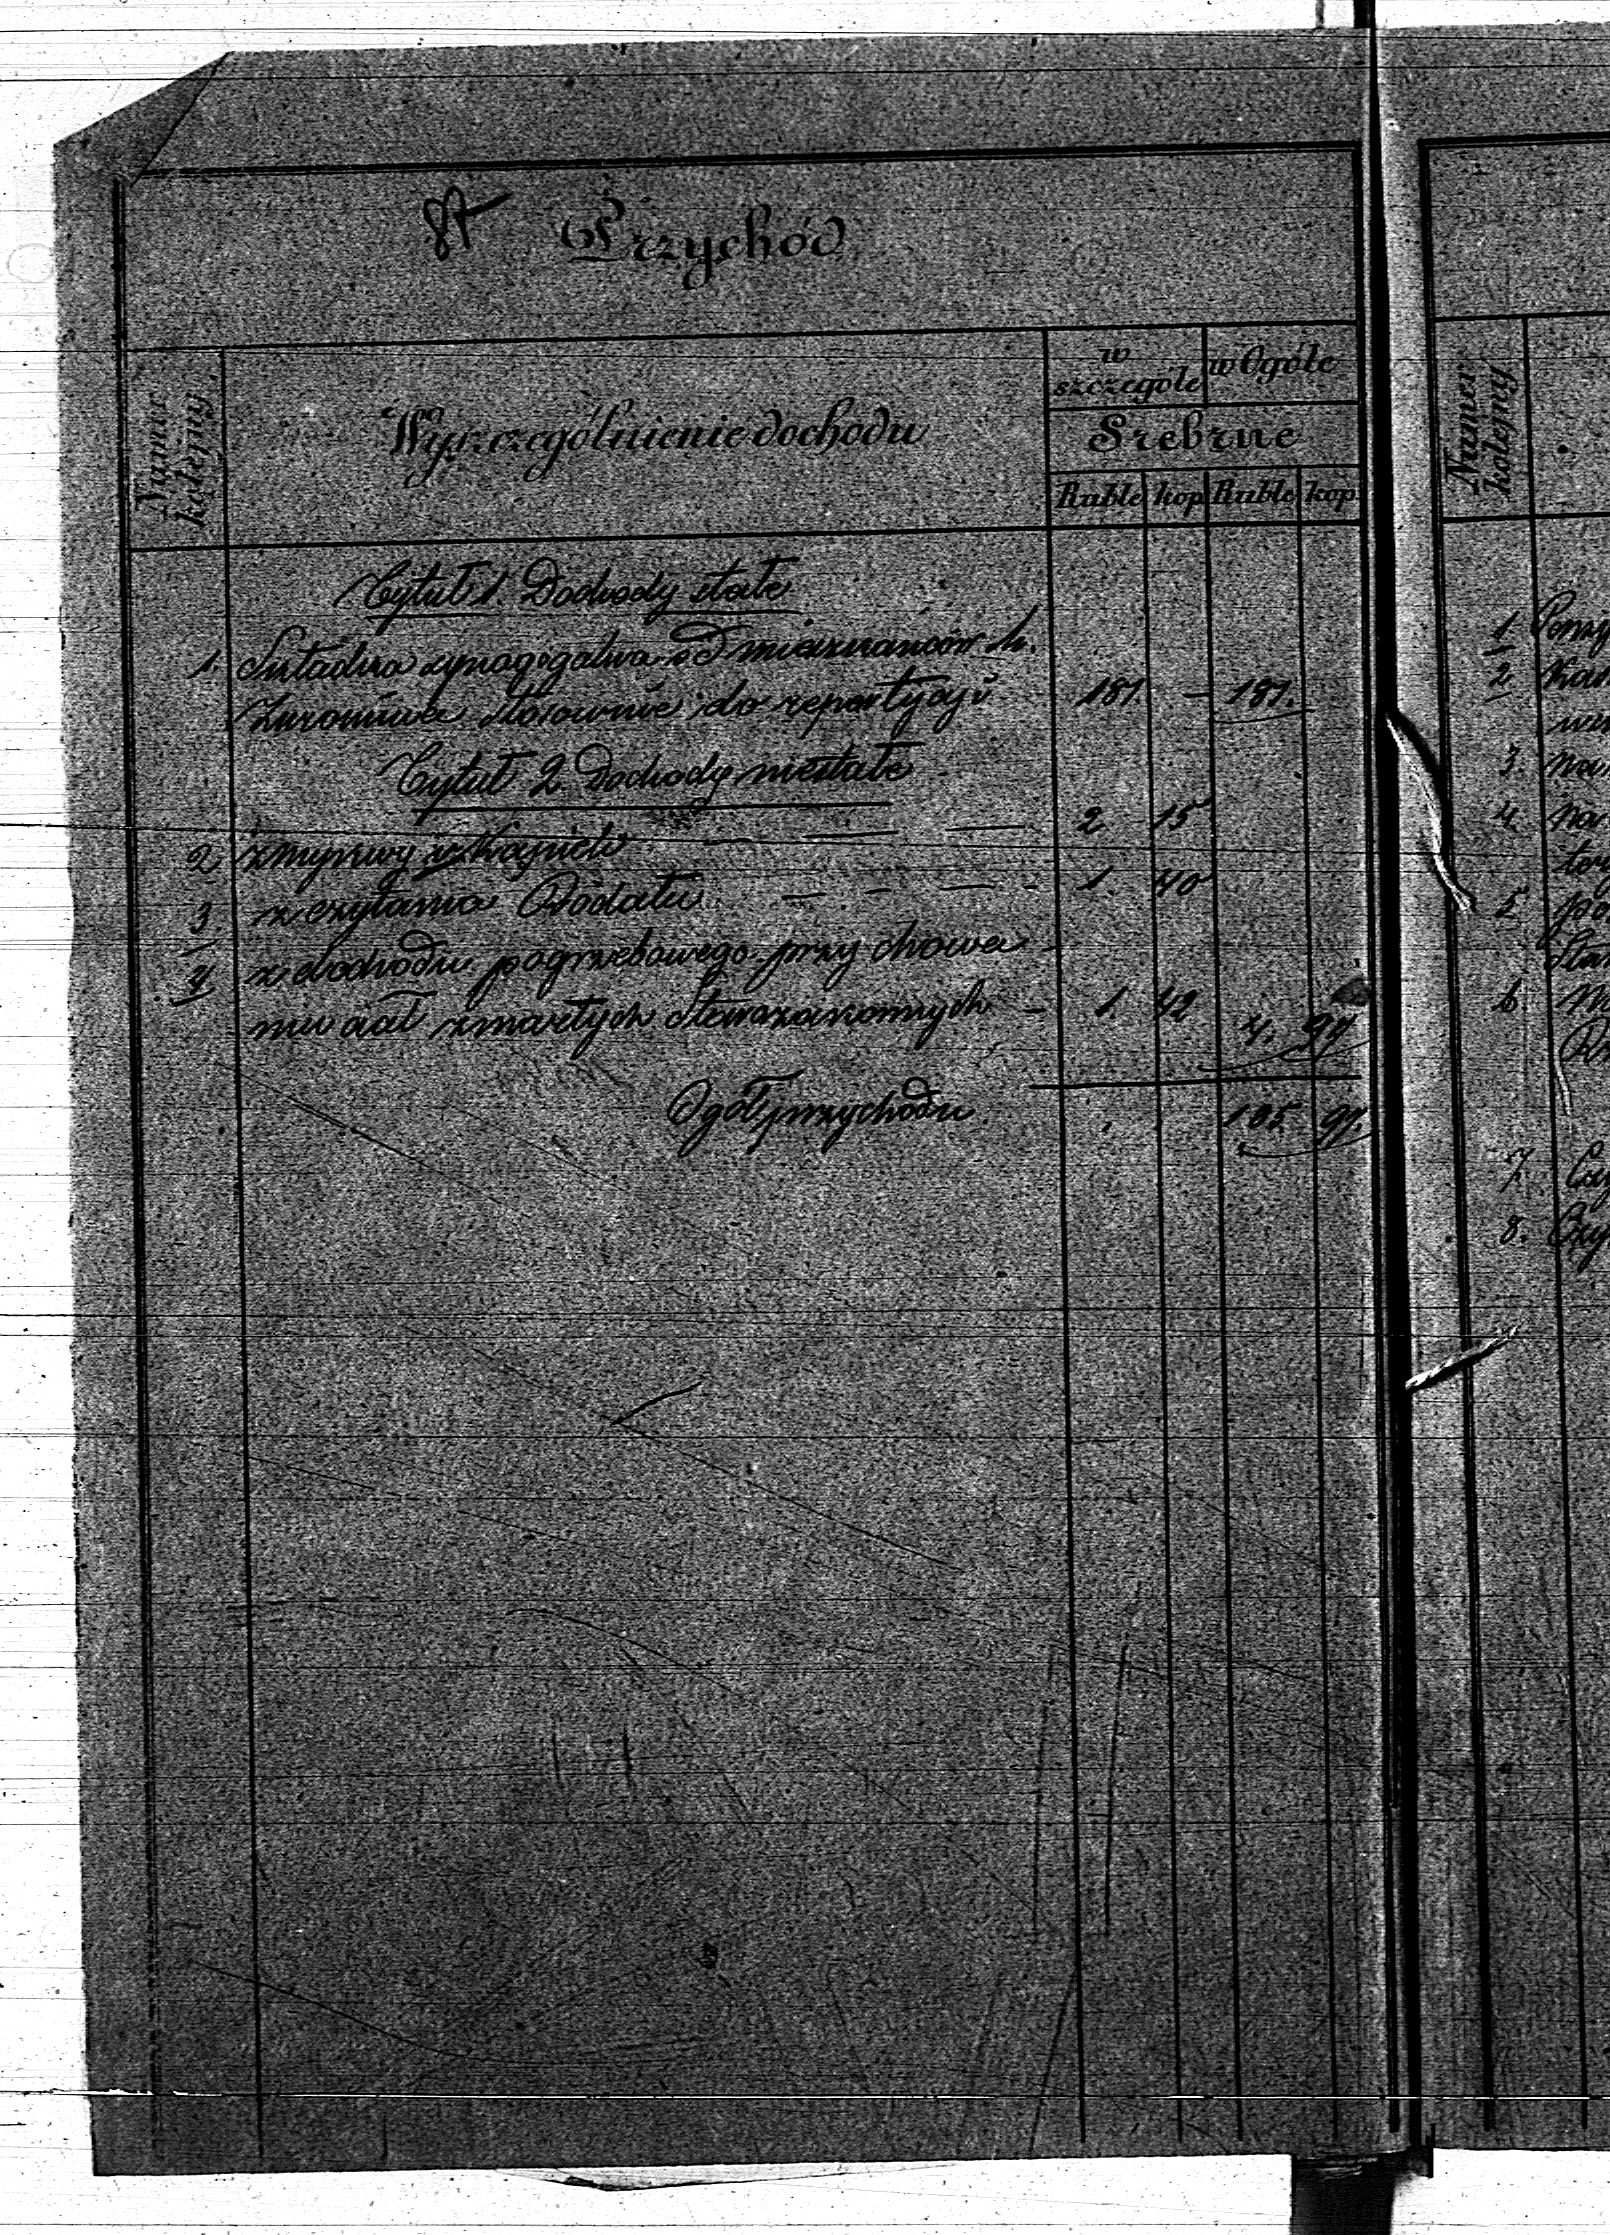 Przychód
Numer kolejny
Wyszczególnienie dochodu
w szczególe
w Ogóle
Srebrne
Ruble kop Ruble kop
Tytuł 1. Dochody stałe
1. Składka synagogalna od mieszkańców M.
Żuromina stosownie do repartycyi 181. — 181.
Tytuł 2 Dochody niestałe
2 z mykwy 2 15
3. z czytania Rodału 1. 40
4 z dochodu pogrzebowego przy chowa
niu ciał zmarłych Starozakonnych 1. 42 4. 97
Ogół przychodu 185 97.
Numer kolejny
1
2
3.
4. na
5
6.
7.
8.